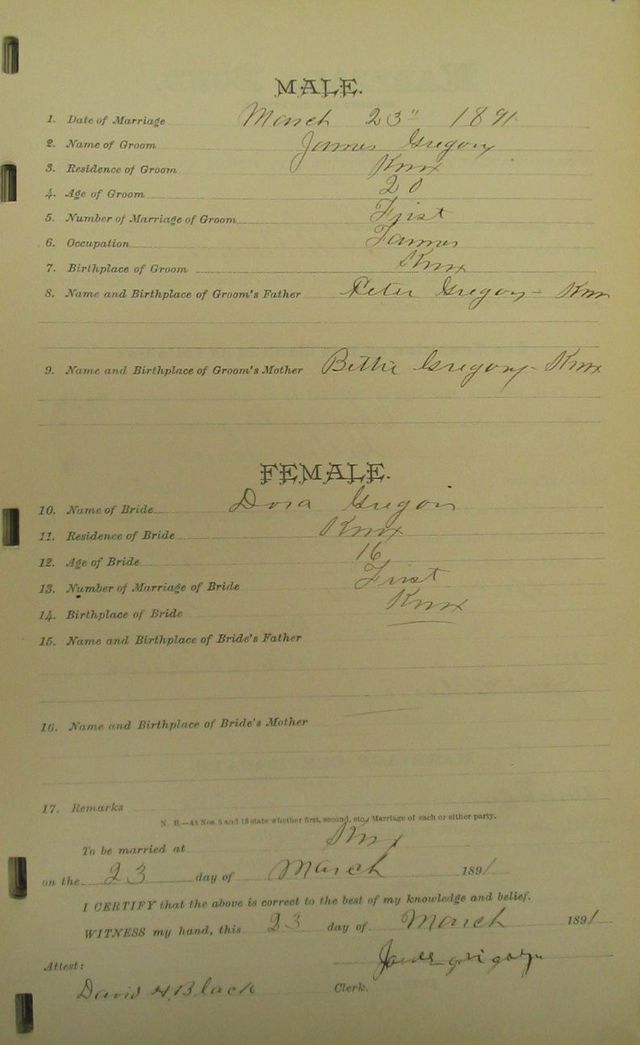 MALE.
1. Date of Marriage March 23" 1891
2. Name of Groom James Gregory
3. Residence of Groom Knox
4. Age of Groom 20
5. Number of Marriage of Groom First
6. Occupation Farmer
7. Birthplace of Groom Knox
8. Name and Birthplace of Groom's Father Peter Gregory - Knox
9. Name and Birthplace of Groom's Mother Bettie Gregory - Knox
FEMALE.
10. Name of Bride Dora
11. Residence of Bride Knox
12. Age of Bride 16
13. Number of Marriage of Bride First
14. Birthplace of Bride Knox
15. Name and Birthplace of Bride's Father
16. Name and Birthplace of Bride's Mother
17. Remarks
N. B.—At Nos. 5 and 13 state whether first, second, etc., Marriage of each or either party.
To be married at Knox
on the 23 day of March 1891
I CERTIFY that the above is correct to the best of my knowledge and belief.
WITNESS my hand, this 23 day of March 1891
Attest:
David H. Black Clerk.